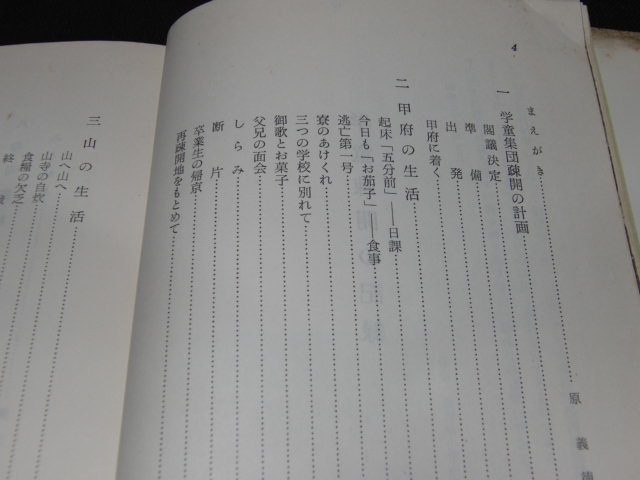 4
まえがき……原義
一 学童集団疎開の計画
閣議決定
準備
出発
甲府に着く
二 甲府の生活
起床「五分前」――日課
今日も「お茄子」――食事
逃亡第一号
寮のあけくれ
三つの学校に別れて
御歌とお菓子
父兄の面会
しらみ
断片
卒業生の帰京
再疎開地をもとめて
三 山の生活
山へ山へ
山寺の自炊
食糧の欠乏
終